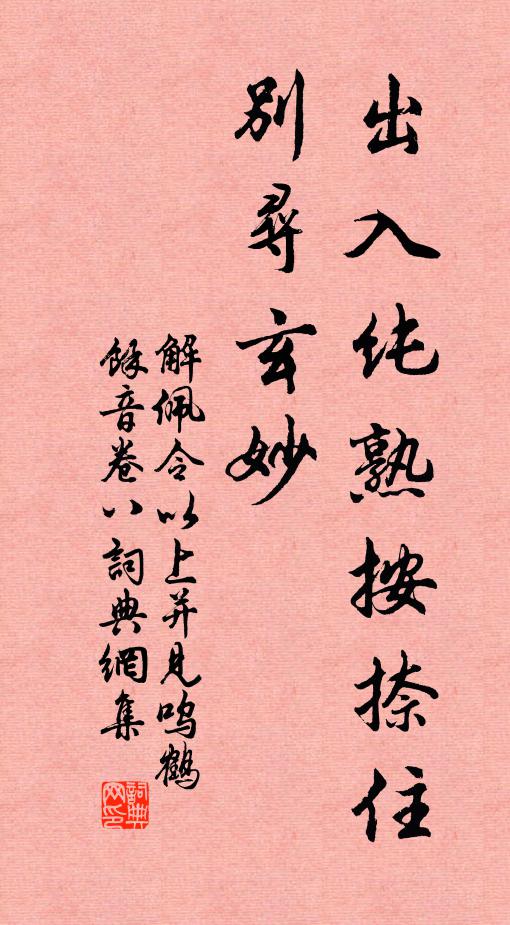 出入纯熟按捺住
別尋玄妙
解佩令以上并見鸣鶴
餘音卷八詞典網集
詞典网印